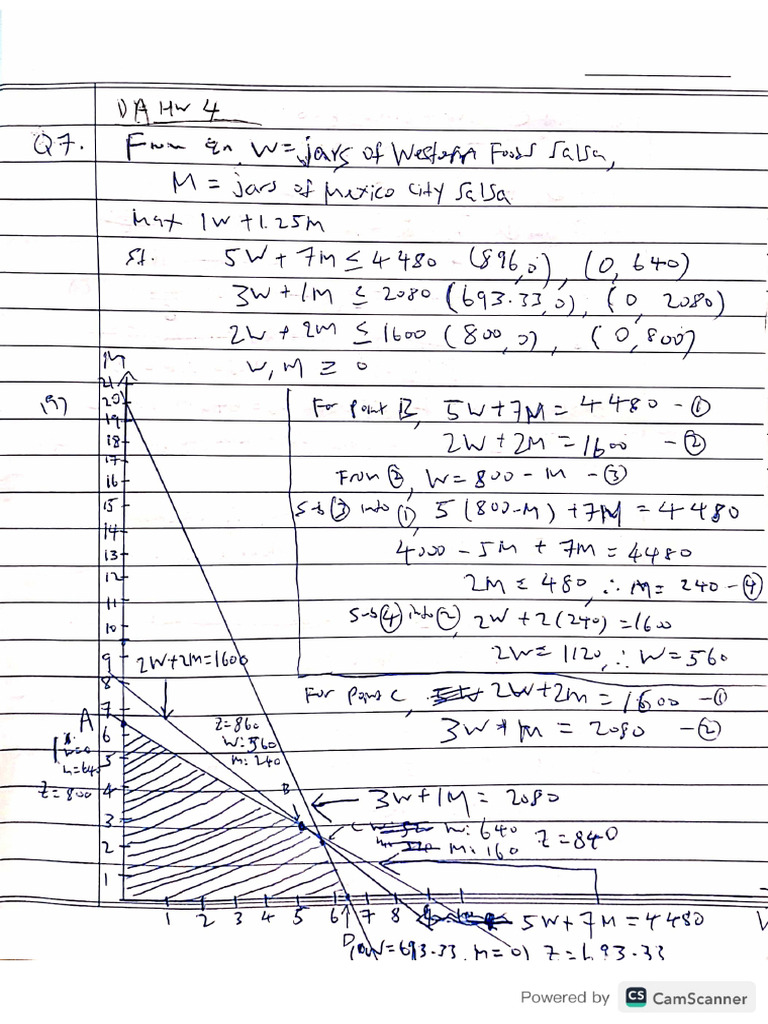 DA HW 4
Q7. From Qn, W = jars of Western Foods Salsa,
M = jars of Mexico City Salsa
Max 1W + 1.25M
st. 5W + 7M ≤ 4480 (896,0), (0, 640)
3W + 1M ≤ 2080 (693.33,0), (0, 2080)
2W + 2M ≤ 1600 (800,0), (0,800)
W, M ≥ 0
M
21
20
19
18
17
16
15
14
13
12
11
10
9
8
7
6
5
4
3
2
1
For point B, 5W + 7M = 4480 - ①
2W + 2M = 1600 - ②
From ②, W = 800 - M - ③
Sub ③ into ①, 5(800-M) + 7M = 4480
4000 - 5M + 7M = 4480
2M = 480, ∴ M = 240 - ④
Sub ④ into ②, 2W + 2(240) = 1600
2W = 1120, ∴ W = 560
For point C, 2W + 2M = 1600 - ①
3W + M = 2080 - ②
2W + 2M = 1600
A
Z = 800
Z = 860
W: 560
M: 240
B
3W + 1M = 2080
C W: 640
M: 160 Z = 840
1 2 3 4 5 6 7 8
5W + 7M = 4480
D
W = 693.33, M = 0) Z = 693.33
Powered by CS CamScanner